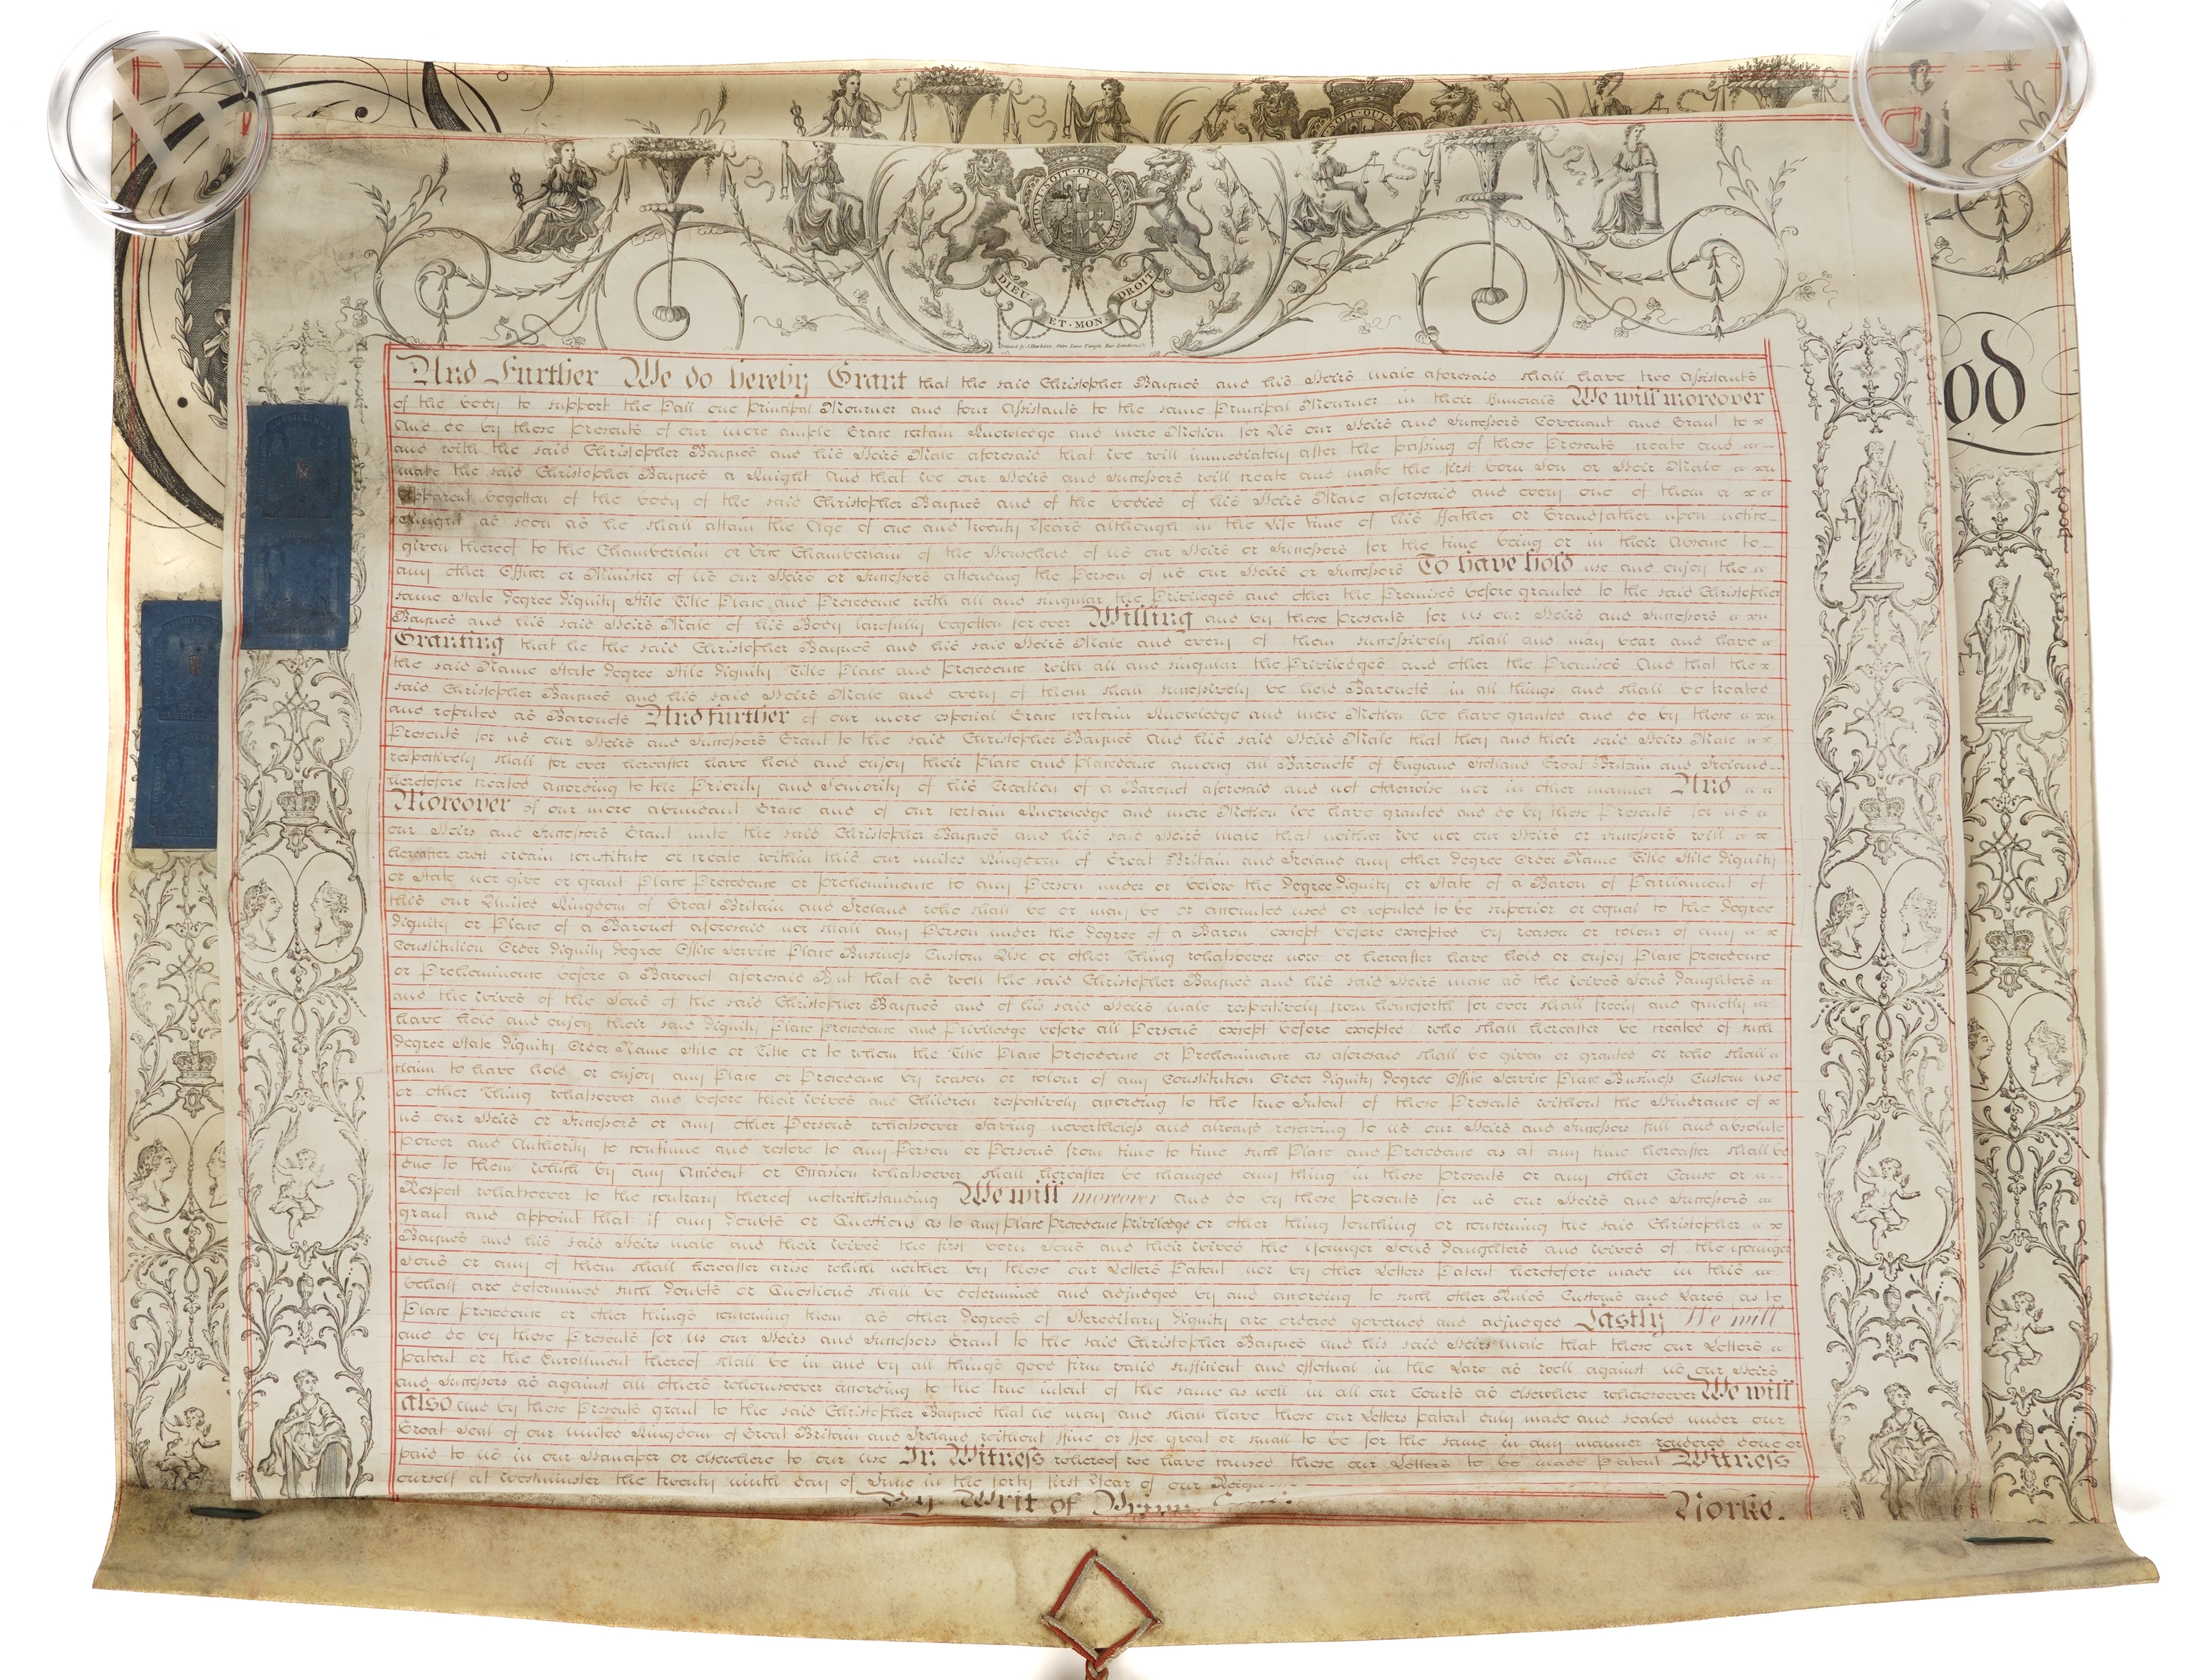 HONI·SOIT·QUI·MAL·Y·PENSE
DIEU ET·MON DROIT
od
And Further We do hereby Grant that the said Christopher Baynes and his Heirs male aforesaid shall have two Assistants
of the body to support the Pall one principal Mourner and four Assistants to the same Principal Mourner in their Funerals We will moreover
And do by these presents of our more ample Grace certain Knowledge and mere Motion for Us our Heirs and Successors Covenant and Grant to
and with the said Christopher Baynes and his Heirs Male aforesaid that we will immediately after the passing of these Presents create and
make the said Christopher Baynes a Knight And that we our Heirs and Successors will create and make the first born Son or Heir Male
Apparent begotten of the body of the said Christopher Baynes and of the bodies of his Heirs Male aforesaid and every one of them a
Knight as soon as he shall attain the Age of one and twenty Years although in the Life time of his Father or Grandfather upon notice
given thereof to the Chamberlain or Vice Chamberlain of the Household of us our Heirs or Successors for the time being or in their Absence to
any other Officer or Minister of us our Heirs or Successors attending the Person of us our Heirs or Successors To have hold use and enjoy the
same State degree dignity Stile Title Place and Precedence with all and singular the Privileges and other the Premises before granted to the said Christopher
Baynes and his said Heirs Male of his Body lawfully begotten for ever Willing and by these presents for us our Heirs and Successors
Granting that he the said Christopher Baynes and his said Heirs Male and every of them successively shall and may bear and have
the said Name State degree Stile dignity Title Place and precedence with all and singular the Priviledges and other the Premises And that the
said Christopher Baynes and his said Heirs Male and every of them shall successively be held Baronets in all things and shall be treated
and reputed as Baronets And further of our more especial Grace certain Knowledge and mere Motion We have granted and do by these
Presents for us our Heirs and Successors Grant to the said Christopher Baynes and his said Heirs Male that they and their said Heirs Male
respectively shall for ever hereafter have hold and enjoy their Place and Placedence among all Baronets of England Scotland Great Britain and Ireland
heretofore created according to the Priority and Seniority of his Creation of a Baronet aforesaid and not otherwise nor in other manner And
Moreover of our more abundant Grace and of our certain Knowledge and mere Motion We have granted and do by these Presents for us
our Heirs and Successors Grant unto the said Christopher Baynes and his said Heirs male that neither We nor our Heirs or Successors will
hereafter erect ordain constitute or create within this our united Kingdom of Great Britain and Ireland any other degree Order Name Title Stile dignity
or State nor give or grant Place Precedence or preheminence to any Person under or below the degree dignity or State of a Baron of Parliament of
this our United Kingdom of Great Britain and Ireland who shall be or may be or accounted used or reputed to be superior or equal to the degree
dignity or Place of a Baronet aforesaid nor shall any Person under the degree of a Baron except before excepted by reason or colour of any
Constitution Order dignity degree Office Service Place Business Custom Use or other Thing whatsoever now or hereafter have hold or enjoy Place precedence
or Preheminence before a Baronet aforesaid But that as well the said Christopher Baynes and his said Heirs male as the wives Sons daughters
and the wives of the Sons of the said Christopher Baynes and of his said Heirs male respectively from henceforth for ever shall freely and quietly
have hold and enjoy their said dignity Place precedence and Priviledge before all Persons except before excepted who shall hereafter be created of such
degree State dignity Order Name Stile or Title or to whom the Title Place precedence or Preheminence as aforesaid shall be given or granted or who shall
claim to have hold or enjoy any Place or Precedence by reason or colour of any Constitution Order dignity degree Office Service Place Business Custom use
or other Thing whatsoever and before their wives and Children respectively according to the true Intent of these Presents without the Hindrance of
us our Heirs or Successors or any other Persons whatsoever Saving nevertheless and always reserving to us our Heirs and Successors full and absolute
power and Authority to continue and restore to any Person or Persons from time to time such Place and Precedence as at any time hereafter shall be
due to them which by any Accident or Occasion whatsoever shall hereafter be changed any thing in these presents or any other Cause or
Respect whatsoever to the contrary thereof notwithstanding We will moreover and do by these presents for us our Heirs and Successors
grant and appoint that if any doubts or Questions as to any place precedence priviledge or other thing touching or concerning the said Christopher
Baynes and his said Heirs male and their wives the first born Sons and their wives the Younger Sons daughters and wives of the younger
Sons or any of them shall hereafter arise which neither by these our Letters Patent nor by other Letters Patent heretofore made in this
behalf are determined such doubts or Questions shall be determined and adjudged by and according to such other Rules Customs and Laws as to
Place precedence or other things concerning them as other degrees of Hereditary dignity are ordered governed and adjudged Lastly We will
and do by these Presents for us our Heirs and Successors Grant to the said Christopher Baynes and his said Heirs male that these our Letters
patent or the Enrollment thereof shall be in and by all things good firm valid sufficient and effectual in the Law as well against us our Heirs
and Successors as against all others whomsoever according to the true intent of the same as well in all our Courts as elsewhere wheresoever We will
also and by these Presents grant to the said Christopher Baynes that he may and shall have these our Letters patent duly made and sealed under our
Great Seal of our United Kingdom of Great Britain and Ireland without Fine or Fee great or small to be for the same in any manner rendered done or
paid to us in our Hanaper or elsewhere to our use In Witness whereof we have caused these our Letters to be made Patent Witness
ourself at Westminster the twenty ninth day of June in the forty first Year of our Reign
By Writ of Privy Seal
Yorke.